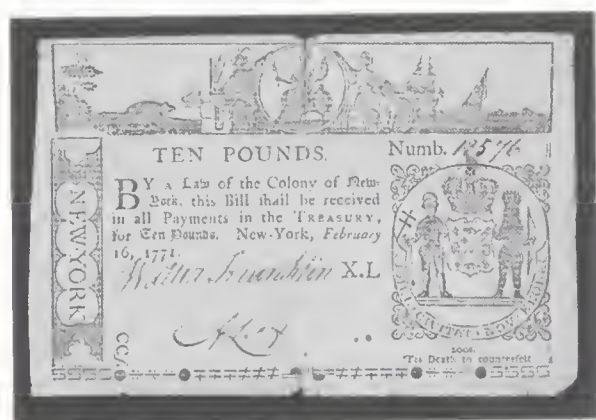 TEN POUNDS.
Numb. 12576
BY A Law of the Colony of New-
York, this Bill shall be received
in all Payments in the TREASURY,
for Ten Pounds. New-York, February
16, 1771.
X.L
NEW-YORK
200s.
'Tis Death to counterfeit